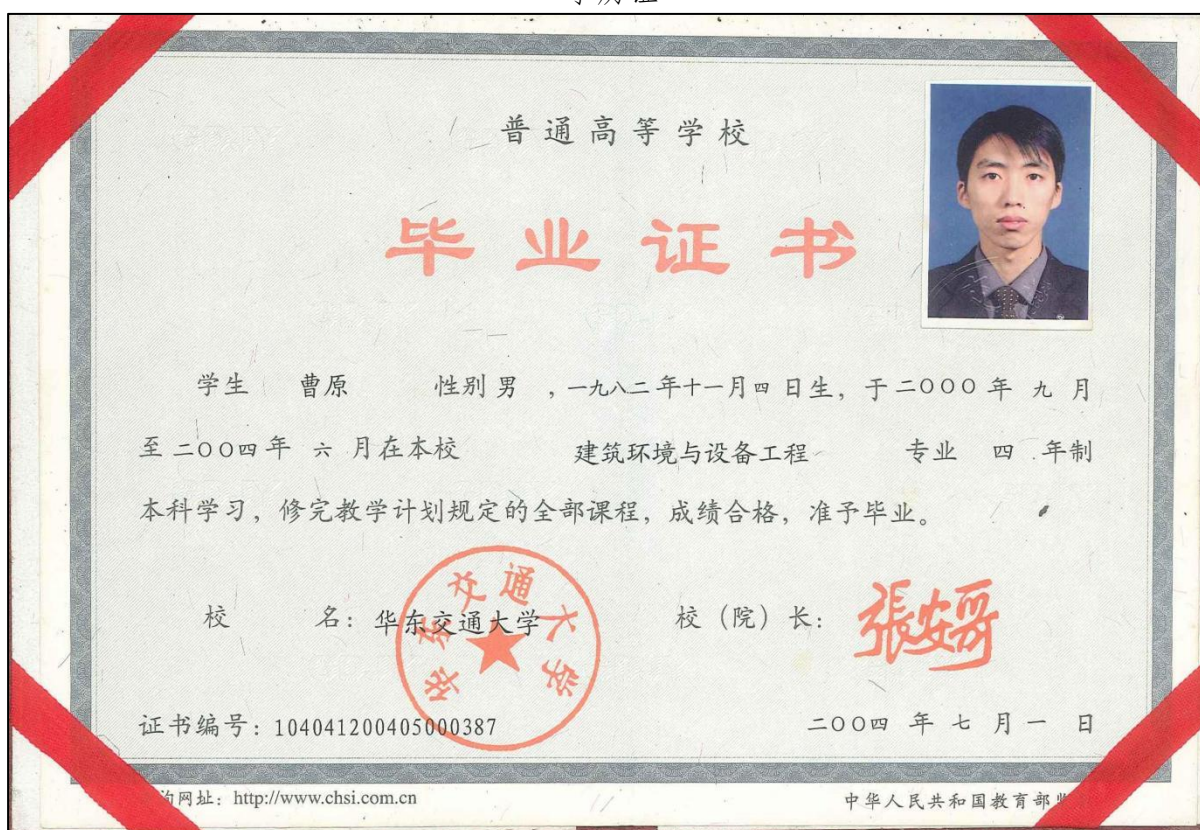 普通高等学校
毕业证书
学生 曹原 性别 男 ，一九八二年十一月四日生，于二〇〇〇年 九 月
至二〇〇四年 六 月在本校 建筑环境与设备工程 专业 四 年制
本科学习，修完教学计划规定的全部课程，成绩合格，准予毕业。
校 名：华东交通大学 校（院）长：
华东交通大学
证书编号：104041200405000387 二〇〇四 年 七 月 一 日
网址：http://www.chsi.com.cn 中华人民共和国教育部